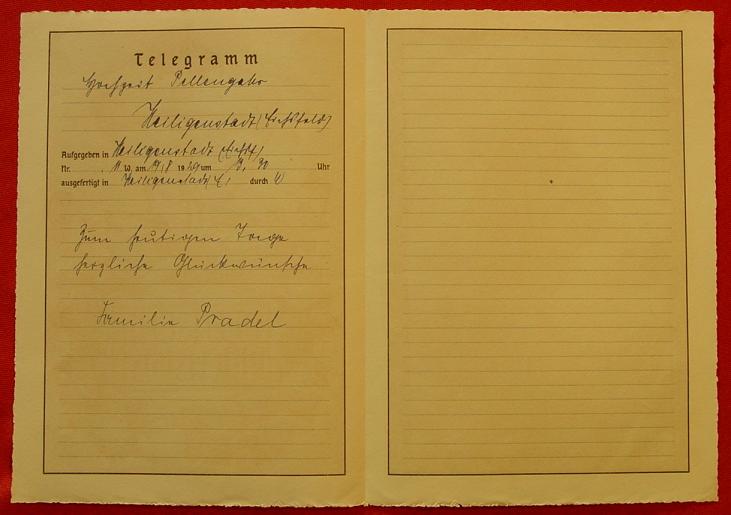 Telegramm
Hochzeit Pellengahr
Heiligenstadt (Eichsfeld)
Aufgegeben in Heiligenstadt (Eichsf)
Nr. 11 W. am 17/8 19 um Uhr
ausgefertigt in Heiligenstadt (E) durch
Zum heutigen Tage
herzliche Glückwünsche
Familie Pradel